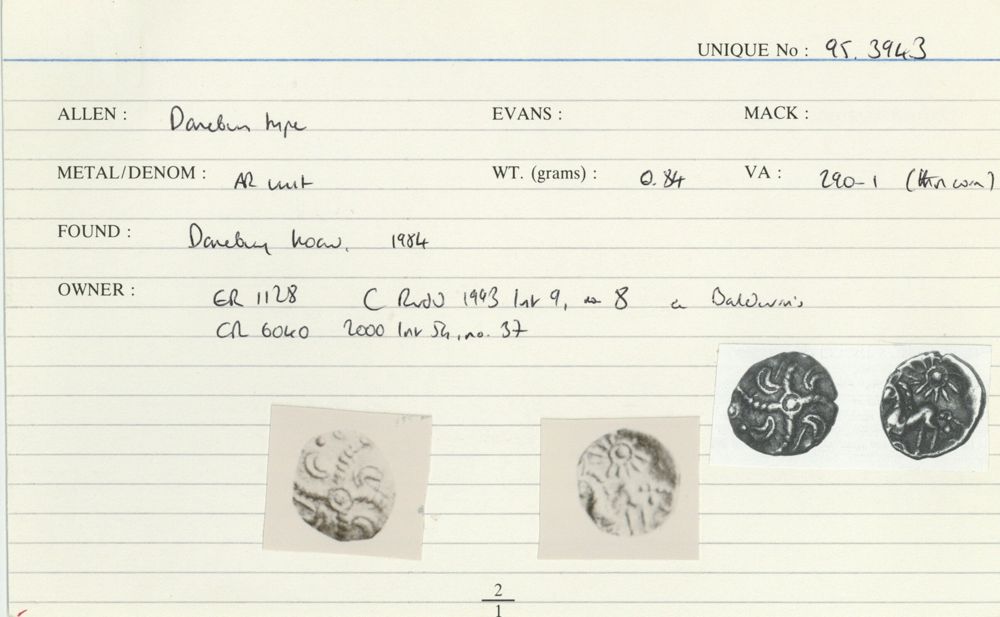 UNIQUE No : 95.3943
ALLEN : Danebury type EVANS : MACK :
METAL/DENOM : AR unit WT. (grams) : 0.84 VA : 290-1 (this coin)
FOUND : Danebury hoard. 1984
OWNER : ER 1128 C Rudd 1993 list 9, no 8 a Baldwin's
CR 6040 2000 list 54, no. 37
2
1